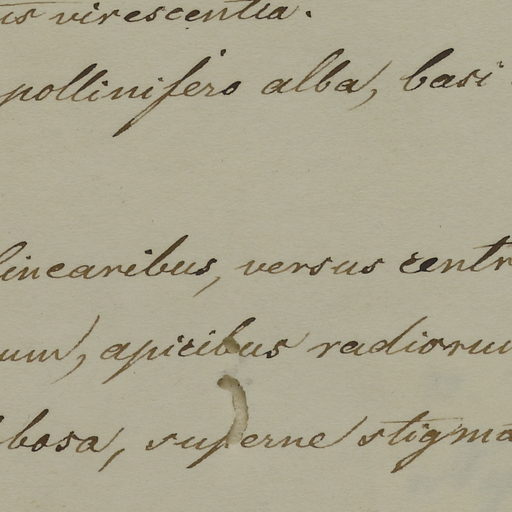 us virescentia.
pollinifero alba, basi
linearibus, versus centr
um, apicibus radiorum
bosa, superne stigma